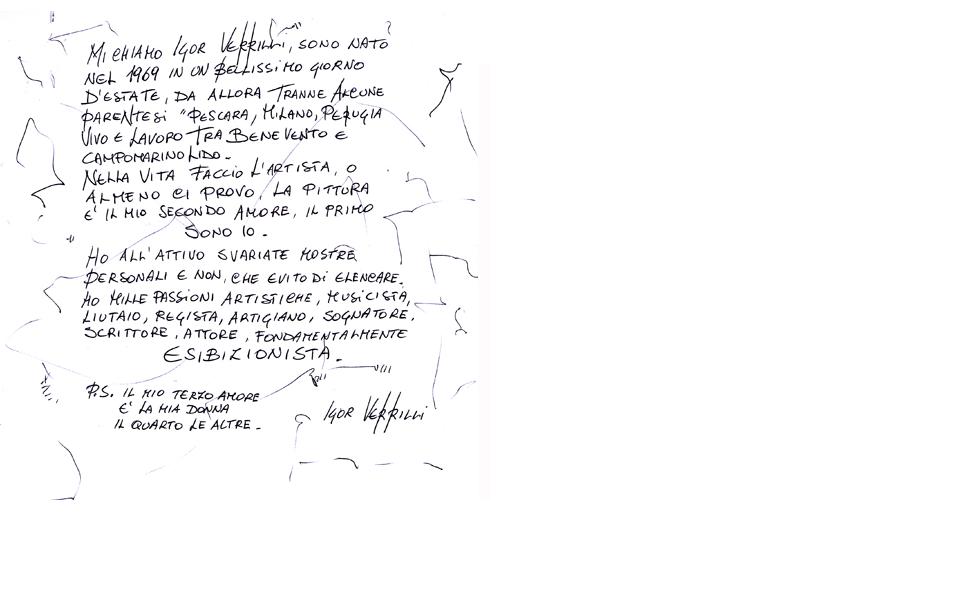 MI CHIAMO IGOR VERRILLI, SONO NATO
NEL 1969 IN UN BELLISSIMO GIORNO
D'ESTATE, DA ALLORA TRANNE ALCUNE
PARENTESI "PESCARA, MILANO, PERUGIA
VIVO E LAVORO TRA BENEVENTO E
CAMPOMARINO LIDO.
NELLA VITA FACCIO L'ARTISTA, O
ALMENO CI PROVO, LA PITTURA
E' IL MIO SECONDO AMORE, IL PRIMO
SONO IO.
HO ALL'ATTIVO SVARIATE MOSTRE
PERSONALI E NON, CHE EVITO DI ELENCARE.
HO MILLE PASSIONI ARTISTICHE, MUSICISTA,
LIUTAIO, REGISTA, ARTIGIANO, SOGNATORE,
SCRITTORE, ATTORE, FONDAMENTALMENTE
ESIBIZIONISTA.
P.S. IL MIO TERZO AMORE
E' LA MIA DONNA
IL QUARTO LE ALTRE.
IGOR VERRILLI